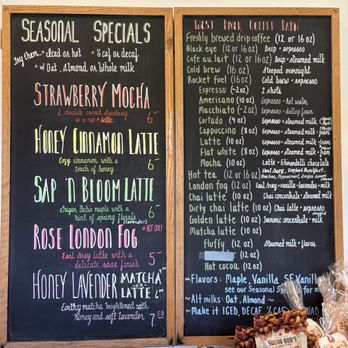 SEASONAL SPECIALS
Try them... iced or hot * 1/2 caf or decaf
* w/ Oat, Almond or Whole milk
STRAWBERRY MOCHA
a chocolate covered strawberry
in a cup of latte 6-
HONEY CINNAMON LATTE
Cozy cinnamon with a
touch of honey 6-
SAP 'N BLOOM LATTE
Sugar Bob's maple with a
hint of spring florals 6-
ROSE LONDON FOG * HOT ONLY
Earl Grey latte with a
delicate rose finish 5-
HONEY LAVENDER MATCHA LATTE
Earthy matcha brightened with
honey and soft lavender 7.50
WEST RIVER COFFEE BARN
Freshly brewed drip coffee (12 or 16 oz)
Black eye (12 or 16 oz) Drip + espresso
Cafe au lait (12 or 16 oz) Drip + steamed milk
Cold brew (16 oz) Steeped overnight
Rocket fuel (16 oz) Cold brew + espresso
Espresso (~2 oz) 2 shots
Americano (10 oz) Espresso + hot water
Macchiato (~2 oz) Espresso + dollop foam
Cortado (4 oz) Espresso + steamed milk
Cappuccino (8 oz) Espresso + steamed milk + foam
Latte (10 oz) Espresso + steamed milk
Flat white (8 oz) Espresso + steamed milk
Mocha (10 oz) Latte + Ghirardelli chocolate
Hot tea (12 or 16 oz)
London fog (12 oz) Earl Grey + vanilla + milk
Chai latte (12 oz) Concentrate + milk
Dirty chai latte (12 oz) Chai latte + espresso
Golden latte (12 oz) Turmeric concentrate + milk
Matcha latte (10 oz)
Fluffy (12 oz) Steamed milk + flavor
(12 oz)
Hot cocoa (12 oz)
~ Flavors: Maple, Vanilla, SF Vanilla
see our Seasonal
~ Alt milks: Oat, Almond ~
~ Make it ICED, DECAF, 1/2 CAF
SUGAR BOB'S